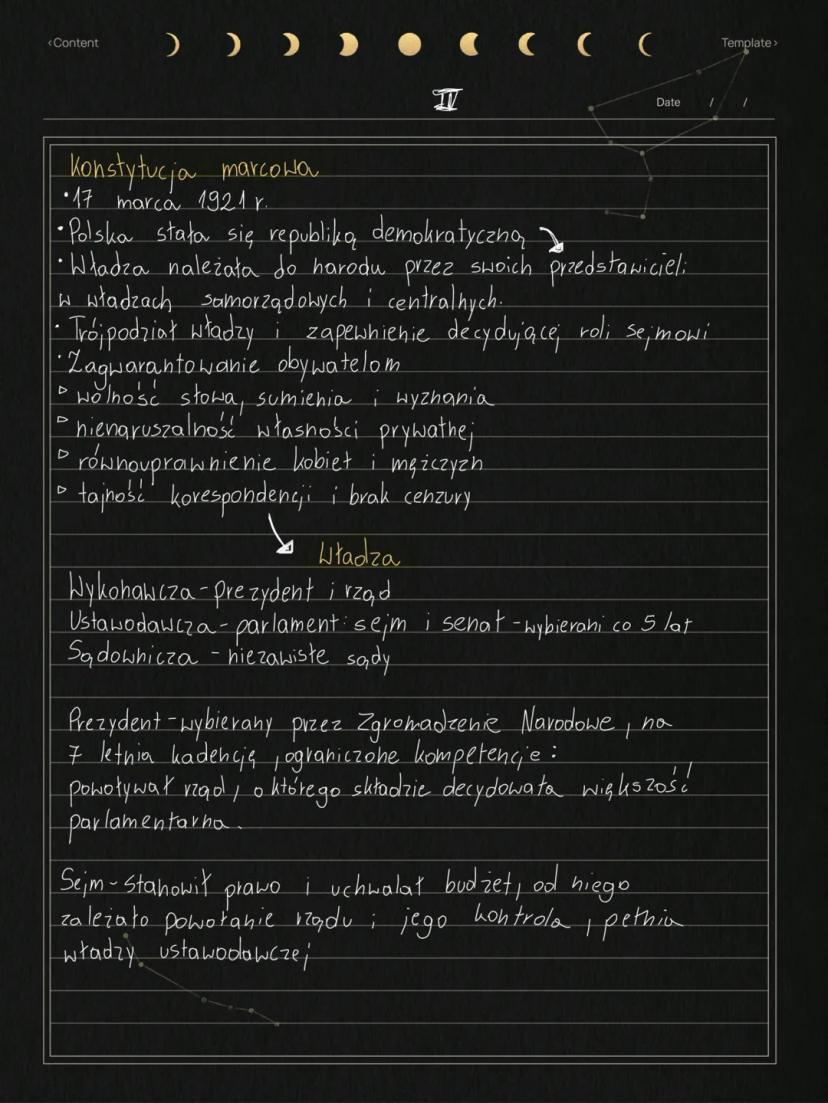 ‹Content
Template›
IV
Date / /
Konstytucja marcowa
•17 marca 1921 r.
•Polska stała się republiką demokratyczną
•Władza należała do narodu przez swoich przedstawicieli
w władzach samorządowych i centralnych.
•Trójpodział władzy i zapewnienie decydującej roli sejmowi
•Zagwarantowanie obywatelom
▹ wolność słowa, sumienia i wyznania
▹ nienaruszalność własności prywatnej
▹ równouprawnienie kobiet i mężczyzn
▹ tajność korespondencji i brak cenzury
Władza
Wykonawcza-prezydent i rząd
Ustawodawcza-parlament: sejm i senat-wybierani co 5 lat
Sądownicza - niezawisłe sądy
Prezydent-wybierany przez Zgromadzenie Narodowe, na
7 letnia kadencję, ograniczone kompetencje:
powoływał rząd, o którego składzie decydowała większość
parlamentarna.
Sejm-stanowił prawo i uchwalał budżet, od niego
zależało powołanie rządu i jego kontrola, pełnia
władzy ustawodawczej